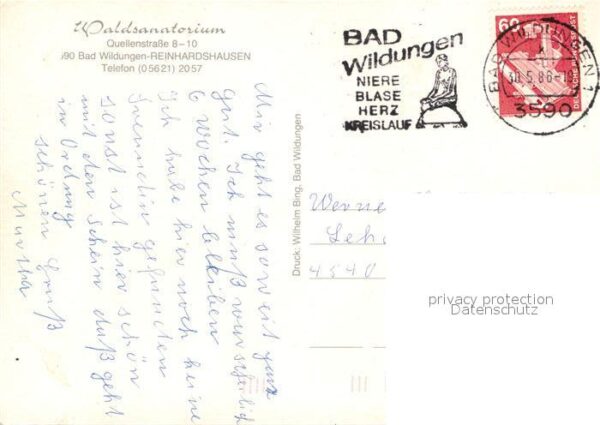 Waldsanatorium
Quellenstraße 8–10
590 Bad Wildungen-REINHARDSHAUSEN
Telefon (05621) 2057
BAD
Wildungen
NIERE
BLASE
HERZ
KREISLAUF
60
DEUTSCHE BUNDESPOST
BAD WILDUNGEN 1
30.5.86-18
3590
Mir geht es soweit ganz
gut. Ich muß warscheinlich
6 Wochen bleiben
Ich habe hier noch keine
Freundin gefunden
sonst ist hier schön
mit den Schein daß geht
in Ordnung
schönen Gruß
Martha
Druck: Wilhelm Bing, Bad Wildungen
Werne
Leh
4540
privacy protection
Datenschutz